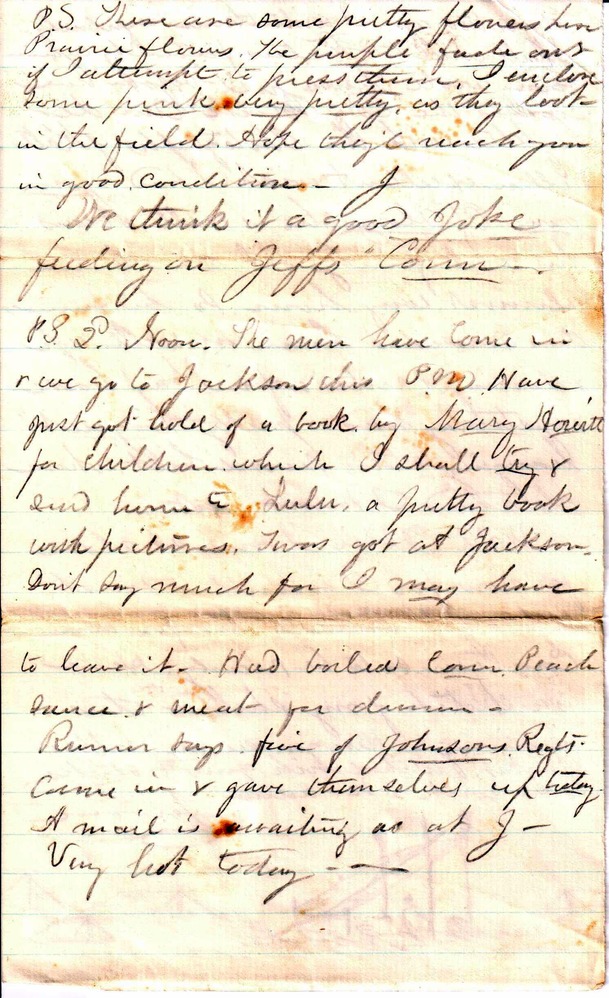 P.S. There are some pretty flowers here
Prairie flowers. The purple fade out
if I attempt to press them, I enclose
some pink very pretty, as they look
in the field. Hope they'l reach you
in good condition - J
We think it a good Joke
feeding on "Jeffs" Corn -.
P.S. 2. Noon. The men have come in
& we go to Jackson this P.M. Have
just got hold of a book by Mary Howitt
for children which I shall try &
send home to Lulu, a pretty book
with pictures. Twas got at Jackson.
Don't say much for I may have
to leave it - Had boiled Corn Peach
sauce & meat for dinner -
Rumor says five of Johnsons Regts.
Came in & gave themselves up today.
A mail is awaiting us at J -
Very hot today - —